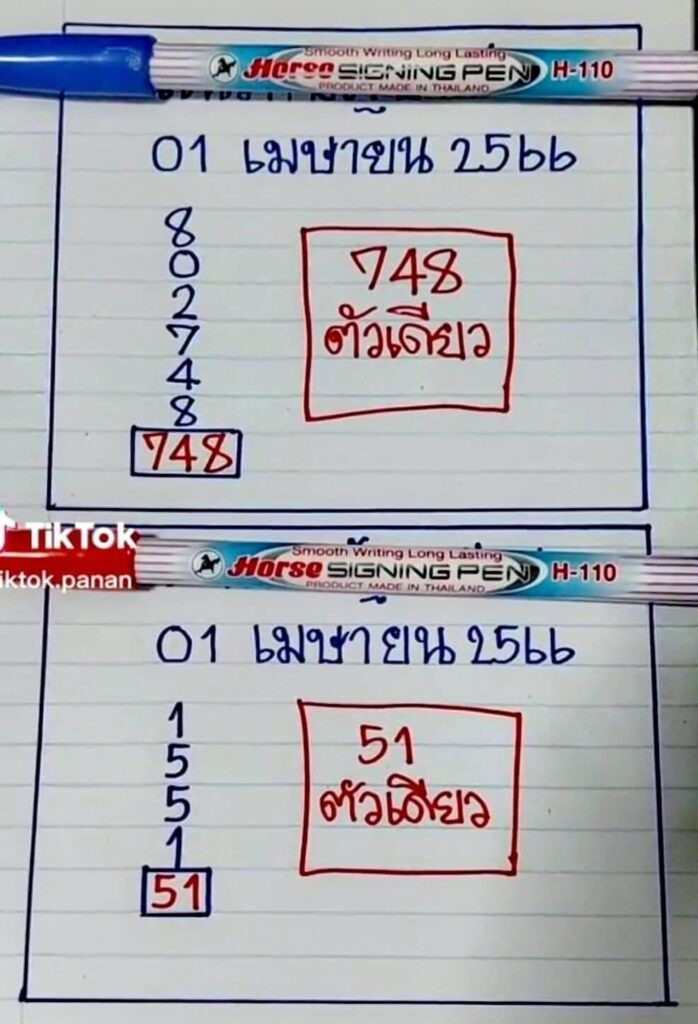 Smooth Writing Long Lasting
Horse SIGNING PEN H-110
PRODUCT MADE IN THAILAND
01 เมษายน 2566
8
0
2
7
4
8
748
748
ตัวเดียว
TikTok
iktok.panan
Smooth Writing Long Lasting
Horse SIGNING PEN H-110
PRODUCT MADE IN THAILAND
01 เมษายน 2566
1
5
5
1
51
51
ตัวเดียว